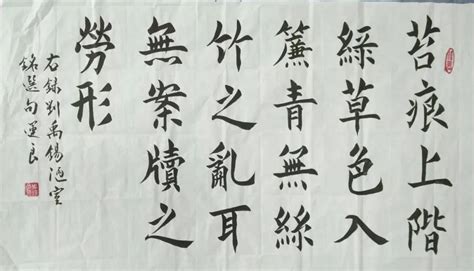 苔痕上階
綠草色入
簾青無絲
竹之亂耳
無案牘之
勞形
右録刘禹锡陋室
銘选句运良